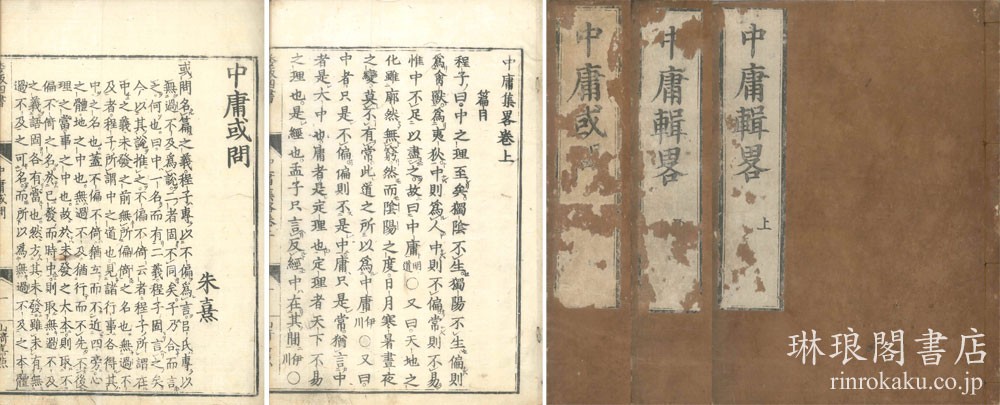 中庸或問
朱熹
或問名篇之義程子專以不偏為言呂氏專以
無過不及為說二者固不同矣子乃合而言
之何也曰中一名而有二義程子固言之矣
今以其說推之不偏不倚云者程子所謂在
中之義未發之前無所偏倚之名也無過不
及者程子所謂中之道也見諸行事各得其
中之名也蓋不偏不倚猶立而不近四旁心
之體地之中也無過不及猶行而不先不後
理之當事之中也故於未發之大本則取不
偏不倚之名於已發而時中則取無過不及
之義語固各有當也然方其未發雖未有無
過不及之可名而所以為無過不及之本體
中庸集畧卷上
篇目
程子曰中之理至矣獨陰不生獨陽不生偏則
為禽獸為夷狄中則為人中則不偏常則不易
惟中不足以盡之故曰中庸明道○又曰天地之
化雖廓然無窮然而陰陽之度日月寒暑晝夜
之變莫不有常此道之所以為中庸伊川○又曰
中者只是不偏偏則不是中庸只是常猶言中
者是大中也庸者是定理也定理者天下不易
之理也是經也孟子只言反經中在其間伊川○
中庸輯畧 上
中庸輯畧
中庸或
琳琅閣書店
rinrokaku.co.jp